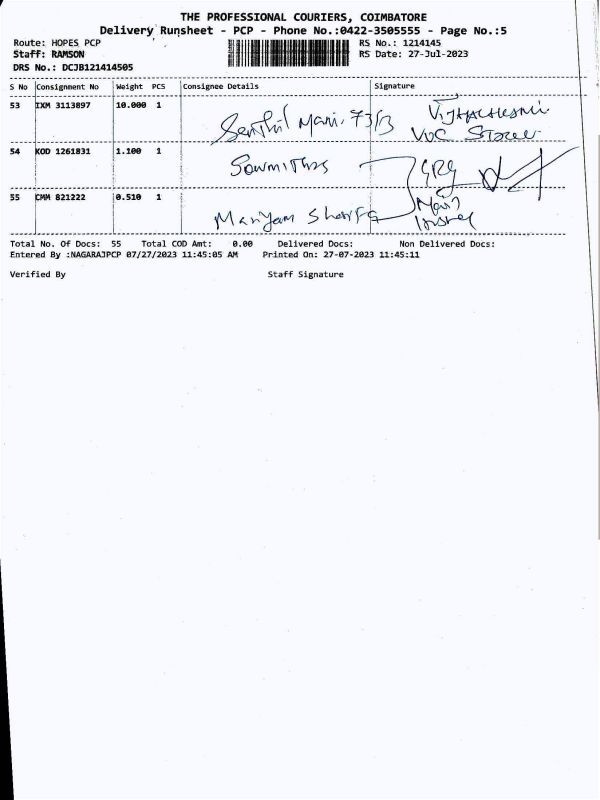 THE PROFESSIONAL COURIERS, COIMBATORE
Delivery Runsheet - PCP - Phone No.:0422-3505555 - Page No.:5
Route: HOPES PCP RS No.: 1214145
Staff: RAMSON RS Date: 27-Jul-2023
DRS No.: DCJB121414505
S No Consignment No Weight PCS Consignee Details Signature
53 IXM 3113897 10.000 1 Senthil Mari. 73/3
VOC Street
54 KOD 1261831 1.100 1 Sowmithra GRG
55 CMM 821222 0.510 1 Mariyam Sharifa
Total No. Of Docs: 55 Total COD Amt: 0.00 Delivered Docs: Non Delivered Docs:
Entered By :NAGARAJPCP 07/27/2023 11:45:05 AM Printed On: 27-07-2023 11:45:11
Verified By Staff Signature